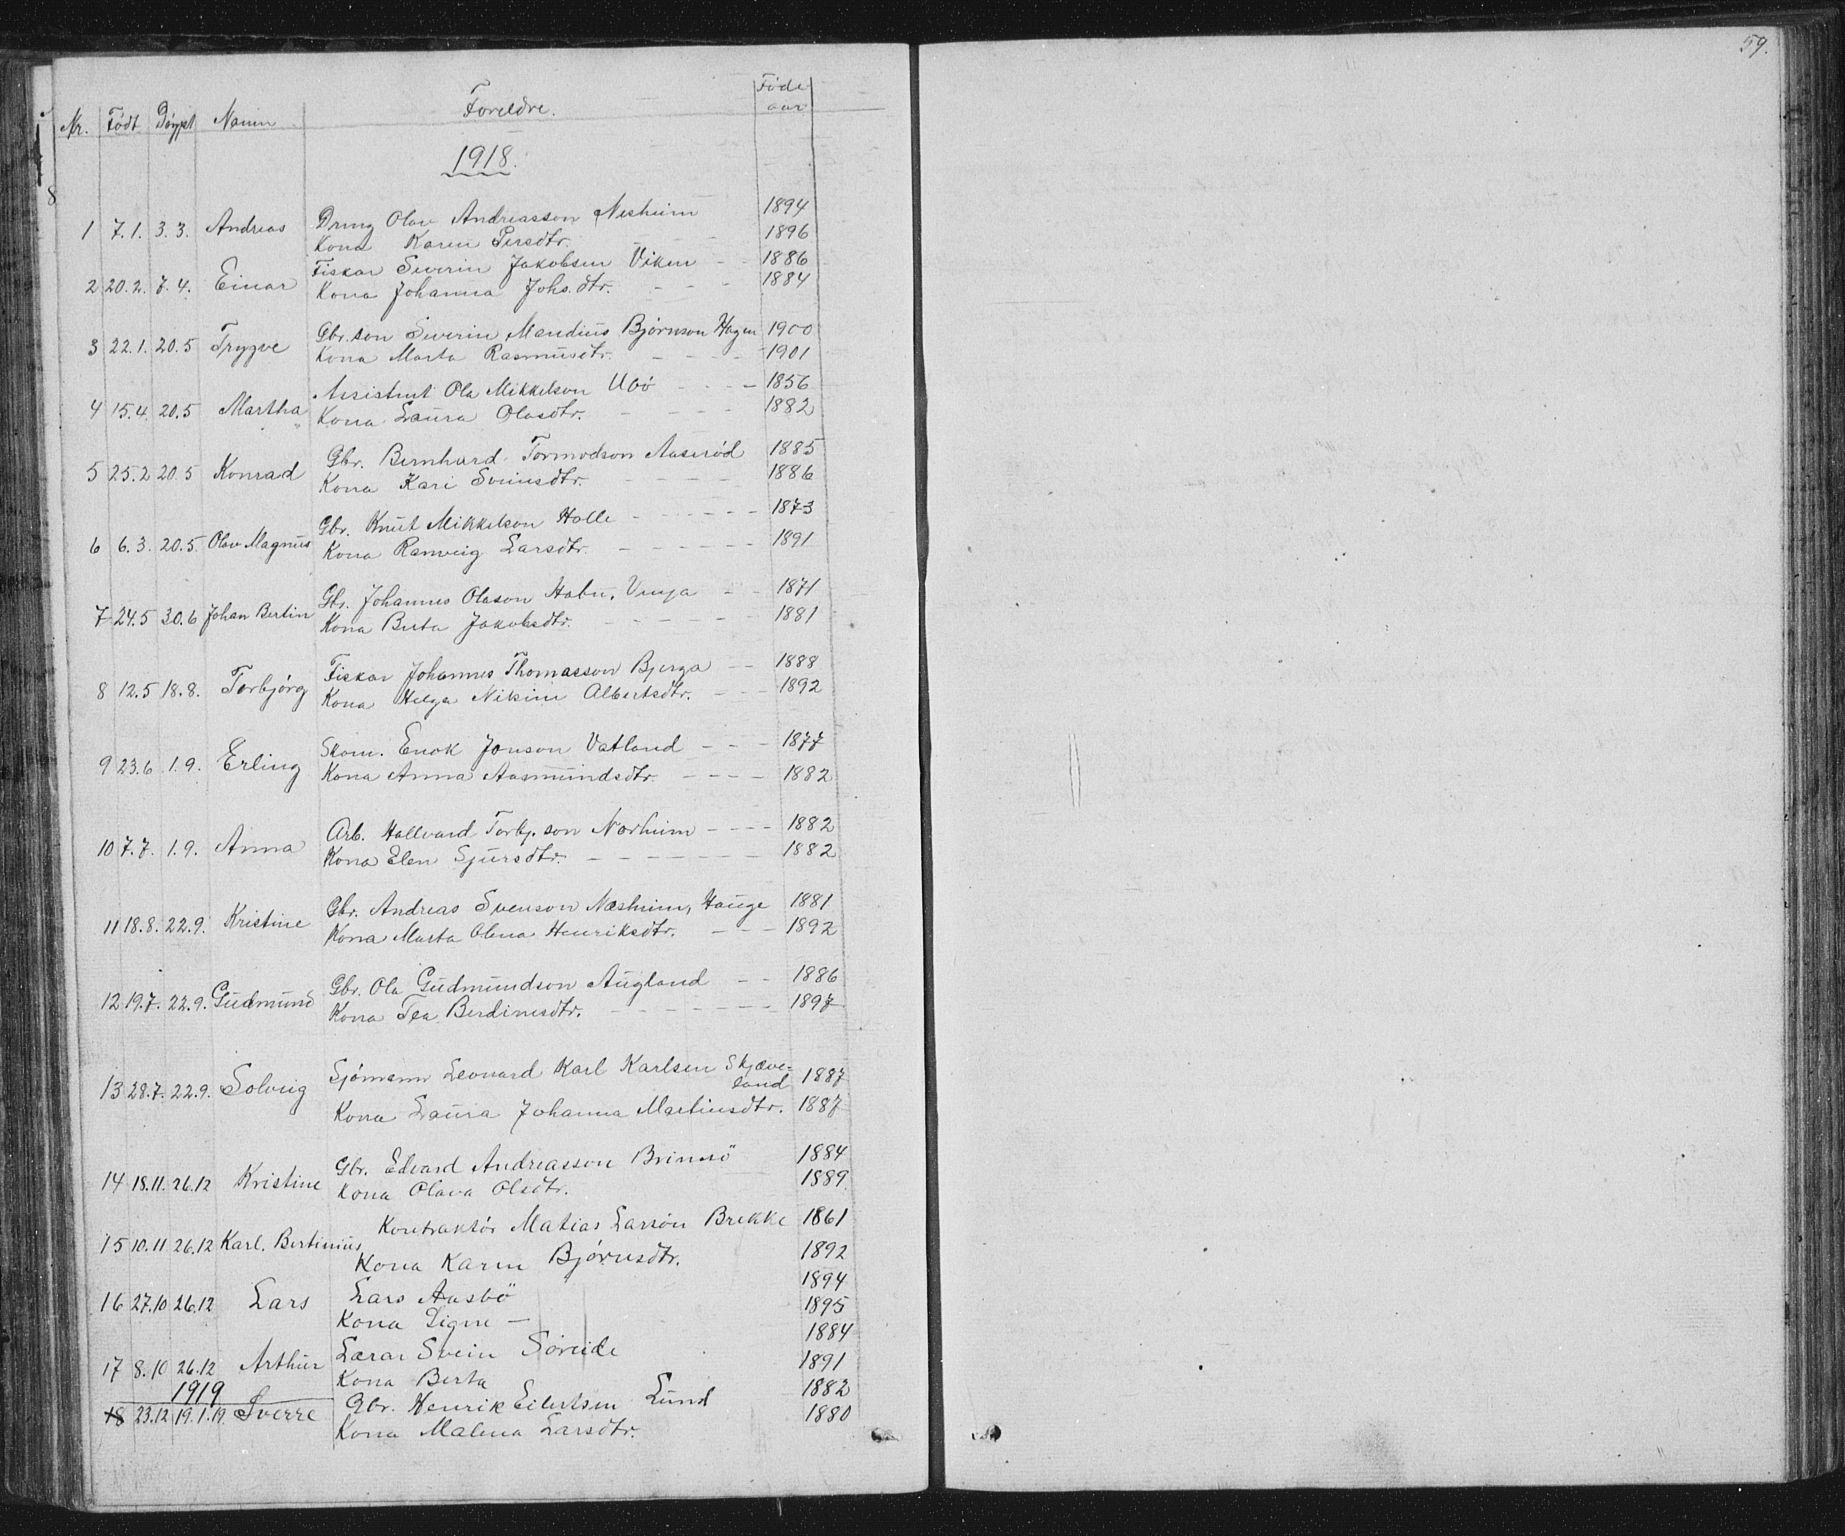 59.
Nr. Födt Döypt Namn Foreldre. Föde aar
1918.
1 7.1. 3.3. Andreas Dreng Olav Andreasson Nesheim 1894
Kona Karen Persdtr. 1896
2 20.2. 7.4. Einar Fiskar Severin Jakobsen Viken 1886
Kona Johanna Johs.dtr. 1884
3 22.1. 20.5 Trygve Gbr.son Severin Mandius Björnson Hagen 1900
Kona Marta Rasmusdtr. 1901
4 15.4. 20.5 Martha Assistent Ola Mikkelson Ubö 1856
Kona Laura Olasdtr. 1882
5 25.2 20.5 Konrad Gbr. Bernhard Tormodson Aaseröd 1885
Kona Kari Svensdtr. 1886
6 6.3. 20.5. Olav Magnus Gbr. Knut Mikkelson Holle 1873
Kona Ranveig Larsdtr. 1891
7 24.5 30.6 Johan Bertin Gbr. Johannes Olason Habn, Vinja 1871
Kona Berta Jakobsdtr. 1881
8 12.5 18.8. Torbjörg Fiskar Johannes Thomasson Bjerga 1888
Kona Helga Nikine Albertsdtr. 1892
9 23.6 1.9. Erling Skom. Enok Jonson Vatland 1877
Kona Anna Aasmundsdtr. 1882
10 7.7. 1.9. Anna Arb. Hallvard Torbj.son Norheim 1882
Kona Elen Sjursdtr. 1882
11 18.8. 22.9. Kristine Gbr. Andreas Svenson Næsheim, Hauge 1881
Kona Marta Olena Henriksdtr. 1892
12 19.7. 22.9. Gudmund Gbr. Ola Gudmundson Augland 1886
Kona Tea Berdinesdtr. 1897
13 28.7. 22.9. Solveig Sjömann Leonard Karl Karlsen Skjæve-
land 1887
Kona Laura Johanna Martinsdtr. 1887
14 18.11. 26.12 Kristine Gbr. Edvard Andreasson Brimsö 1884
Kona Olava Olsdtr. 1889
15 10.11 26.12 Karl. Bertinius Kontraktör Matias Larson Brekke 1861
Kona Karen Björnsdtr. 1892
16 27.10 26.12 Lars Lars Aasbö 1894
Kona Signe — 1895
17 8.10 26.12 Arthur Lærar Svein Söreide 1884
Kona Berta 1891
1919
18 23.12 19.1.19 Sverre Gbr. Henrik Eilertsen Lund 1882
Kona Malena Larsdtr. 1880